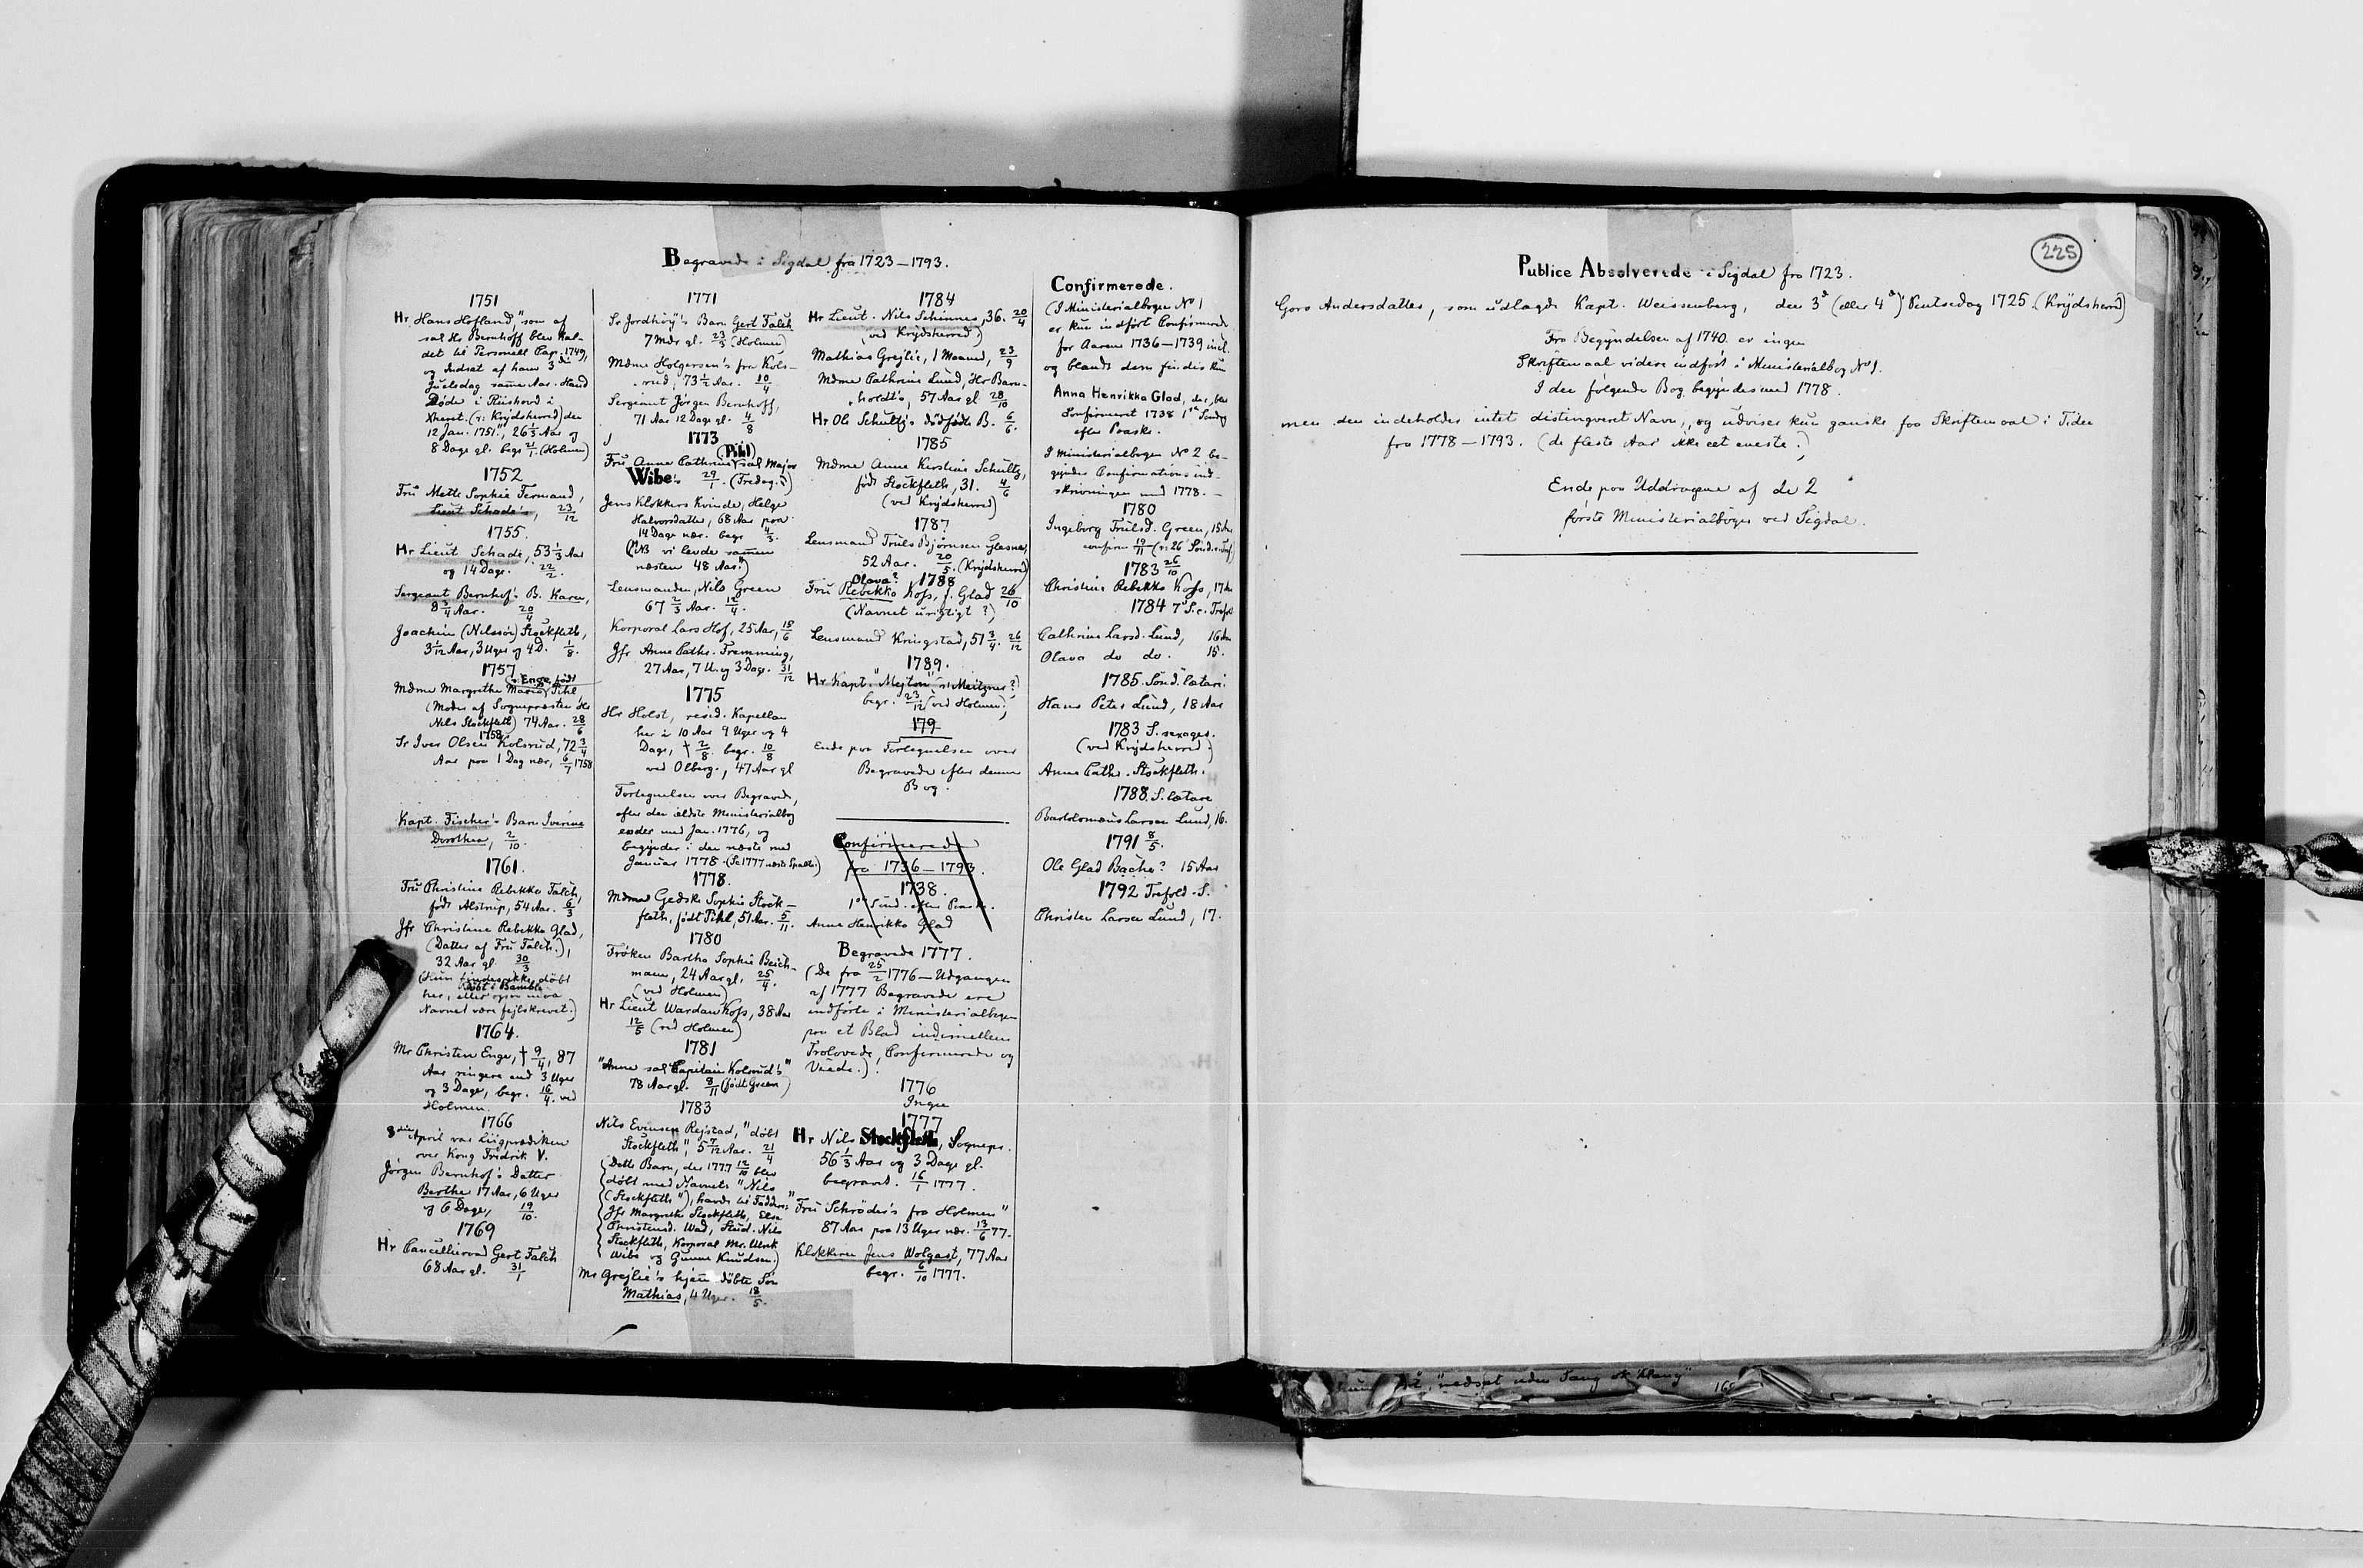 Begravede i Sigdal fra 1723–1793.
1751
Hr. Hans Hofland, "som af
sal. Hr Bernhoff blev kal-
det til Personell Cap. 1749,
og Indsat af ham 3die
Juelsdag samme Aar. Hand
Døde i Riishovd i
Xherret. (ɔ: Krydsherred) den
12 Jan. 1751.", 26 1/3 Aar og
8 Dage gl. begr 21/1. (Holmen)
1752
Fru Mette Sophie Termand,
Lieut Schade's, 23/12
1755.
Hr Lieut Schade, 53 1/3 Aar
og 14 Dage. 22/2.
Sergeant Bernhof's B. Karen,
8 3/4 Aar. 20/4
Joachim (Nilssøn) Stockfleth,
3 7/12 Aar, 3 Uger og 4 D. 1/8.
1757
(ɔ: Enge, født
Mdme Margrethe Maria Pihl
(Moder af Sognepræsten Hr
Nils Stockfleth) 74 Aar. 28/6
1758
Sr Iver Olsen Kolsrud, 72 3/4
Aar paa 1 Dag nær, 6/7 1758
Kapt. Fischer's Barn Iverine
Dorothea, 2/10.
1761.
Fru Christine Rebekka Falch,
født Alstrup, 54 Aar. 6/3
Jfr Christine Rebekka Glad,
(Datter af Fru Falch.),
32 Aar gl. 30/3
(Hun findes ikke døbt
døbt i Bamble
her, eller ogsaa maa
Navnet være fejlskrevet.)
1764.
Mr Christen Enge, † 9/4, 87
Aar ringere end 3 Uger
og 3 Dage, begr. 16/4. ved
Holmen.
1766
8de April var Liigprædiken
over Kong Fridrik V.
Jørgen Bernhof's Datter
Berthe 17 Aar, 6 Uger
og 6 Dage, 19/10.
1769
Hr Cancelliraad Gert Falch
68 Aar gl. 31/1
1771
Sr Jordhøy's Barn Gert Falch
7 Mdr gl. 23/3 (Holmen)
Mdme Holgersen's fra Kols-
rud, 73 1/2 Aar. 10/4
Sergeant Jörgen Bernhoff,
71 Aar 12 Dage gl. 4/8
1773
(Pihl)
Fru Anna Cathrine sal Major
Wibe's 29/1. (Fredag.)
Jens Klokkers Kvinde, Helge
Halvorsdatter, 68 Aar paa
14 Dage nær. begr 4/3.
("NB vi levde sammen
næsten 48 Aar.")
Lensmanden, Nils Green
67 2/3 Aar. 12/4.
Korporal Lars Hof, 25 Aar, 18/6
Jfr Anne Cathr. Fremming,
27 Aar, 7 U. og 3 Dage. 31/12
1775
Hr Holst, resid. Kapellan
her i 10 Aar 9 Uger og 4
Dage, † 2/8. begr. 10/8
ved Olberg., 47 Aar gl
Fortegnelsen over Begravede,
efter den ældste Ministerialbog
ender med Jan. 1776, og
begynder i den næste med
Januar 1778. (Se 1777 næste Spalte.)
1778.
Mdme Gedske Sophie Stock-
fleth, født Pihl, 51 Aar. 5/11.
1780
Frøken Bartha Sophie Beich-
mann, 24 Aar gl. 25/4.
(ved Holmen)
Hr Lieut Wardan Koss, 38 Aar
12/5 (ved Holmen)
1781
"Anne sal Capitain Kolsrud's"
78 Aar gl. 8/11 (født Green)
1783
Nils Evensen Rejstad, "døbt
Stockfleth", 5 7/12 Aar. 21/4
(Dette Barn, der 1777 12/10 blev
døbt med Navnet "Nils
(Stockfleth"), havde til Faddere:
Jfr Margrethe Stockfleth, Else
Christensd. Wad, Stud. Nils
Stockfleth, Korporal Mr. Ulrik
Wibe og Gunne Knudsen.)
Mr Grejlie's hjemdøbte Søn
Mathias, 4 Uger. 18/5.
1784
Hr Lieut. Nils Schinnes, 36. 20/4
(ved Krydsherred)
Mathias Grejlie, 1 Maaned, 23/9
Mdme Cathrine Lund, Hr Barn-
holdt's, 57 Aar gl 28/10
Hr Ole Schultz's dødfødte B. 6/6.
1785
Mdme Anne Kirstine Schultz,
født Stockfleth, 31. 4/6
(ved Krydsherred)
1787
Lensmand Truls Bjørnsen Glesne,
52 Aar. 20/5. (Krydsherred)
Olava? 1788
Fru Rebekka Koss, f. Glad 26/10
(Navnet urigtigt?)
Lensmand Kringstad, 51 3/4. 26/12
1789.
Hr Kapt. "Mejton" (ɔ: Meitzner?)
begr. 23/12 (ved Holmen)
179
Ende paa Fortegnelsen over
Begravede efter denne
Bog.
Confirmerede
fra 1736–1793.
1738.
1ste Sønd. efter Paaske.
Anne Henrikke Glad
Begravede 1777.
(De fra 25/2 1776–Udgangen
af 1777 Begravede ere
indførte i Ministerialbogen
paa et Blad indimellem
Trolovede, Confirmerede og
Viede.).
1776
Ingen
1777
Hr Nils Stockfleth, Sognepr.
56 1/3 Aar og 3 Dage gl.
begravet. 16/1 1777.
"Fru Schrøder's fra Holmen"
87 Aar paa 13 Uger nær. 13/6 77.
Klokkeren Jens Wolgast, 77 Aar
begr. 6/10 1777.
Confirmerede.
(I Ministerialbogen No 1
er kun indført Confirmerede
for Aarene 1736–1739 incl.
og blandt dem findes kun
Anna Henrikka Glad, der blev
Confirmeret 1738 1ste Søndag
efter Paaske.
I Ministerialbogen No 2 be-
gynder Confirmationsind-
skrivningen med 1778. –
1780
Ingeborg Trulsd. Green, 15 Aar
confirm 19/11 (ɔ: 26 Sønd. e. Tref)
1783 26/10
Christine Rebekka Koss, 17 Aar
1784 7 S. e. Tref
Cathrine Larsd. Lund, 16 Aar
Olava do do. 15.
1785. Sønd. lætari.
Hans Peter Lund, 18 Aar
1783 S. sexages.
(ved Krydsherred)
Anne Cathr. Stockfleth.
1788. S. lætare
Bartolomæus Larsen Lund, 16.
1791 8/5.
Ole Glad Bache? 15 Aar
1792 Trefold. S.
Christen Larsen Lund, 17.
225
Publice Absolverede i Sigdal fra 1723.
Goro Andersdatter, som udlagde Kapt. Weissenberg, den 3d (eller 4d) Pentsedag 1725 (Krydsherred)
Fra Begyndelsen af 1740 er ingen
Skriftemaal videre indført i Ministerialbog No 1.
I den følgende Bog begyndes med 1778.
men den indeholder intet distingvert Navn, og udviser kun ganske faa Skriftemaal i Tiden
fra 1778–1793. (de fleste Aar ikke eet eneste.)
Ende paa Uddragene af de 2
første Ministerialbøger ved Sigdal.
nedsat uden Sang ok Klang"